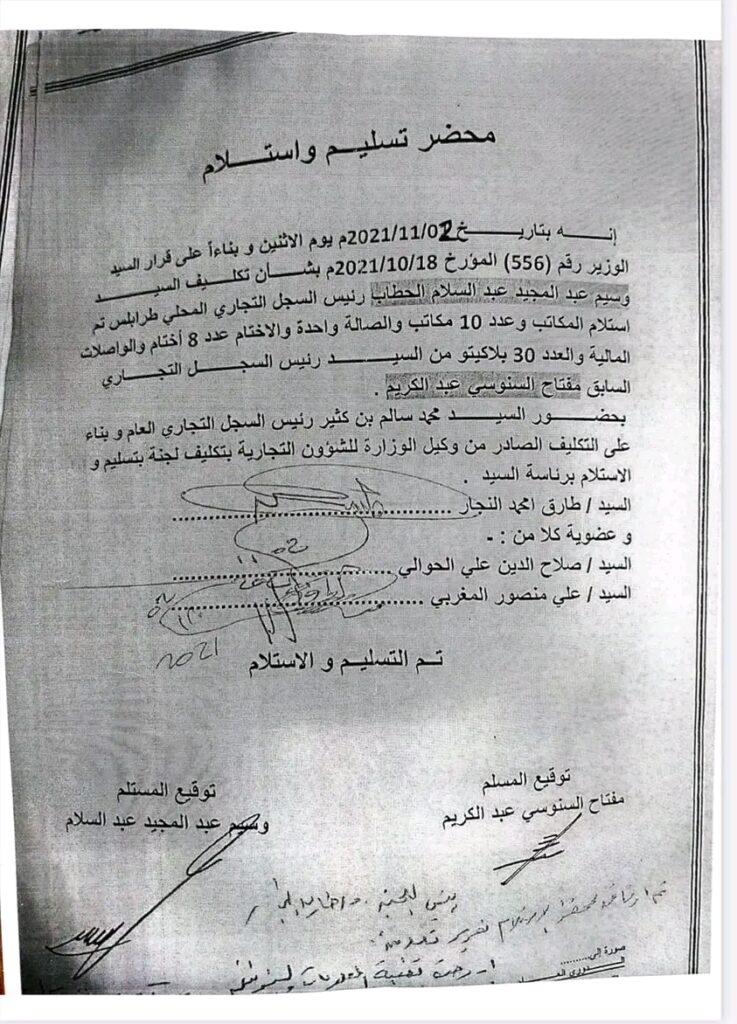 محضر تسليم واستلام
إنه بتاريخ 2021/11/02م يوم الاثنين و بناءاً على قرار السيد
الوزير رقم (556) المؤرخ 2021/10/18م بشأن تكليف السيد
وسيم عبد المجيد عبد السلام الحطاب رئيس السجل التجاري المحلي طرابلس تم
استلام المكاتب وعدد 10 مكاتب والصالة واحدة والاختام عدد 8 أختام والواصلات
المالية والعدد 30 بلاكيتو من السيد رئيس السجل التجاري
السابق مفتاح السنوسي عبد الكريم .
بحضور السيد محمد سالم بن كثير رئيس السجل التجاري العام و بناء
على التكليف الصادر من وكيل الوزارة للشؤون التجارية بتكليف لجنة بتسليم و
الاستلام برئاسة السيد .
السيد / طارق امحمد النجار
و عضوية كلا من : -
السيد / صلاح الدين علي الحوالي
السيد / علي منصور المغربي
2021
تم التسليم و الاستلام
توقيع المسلم
مفتاح السنوسي عبد الكريم
توقيع المستلم
وسيم عبد المجيد عبد السلام
صورة إلى